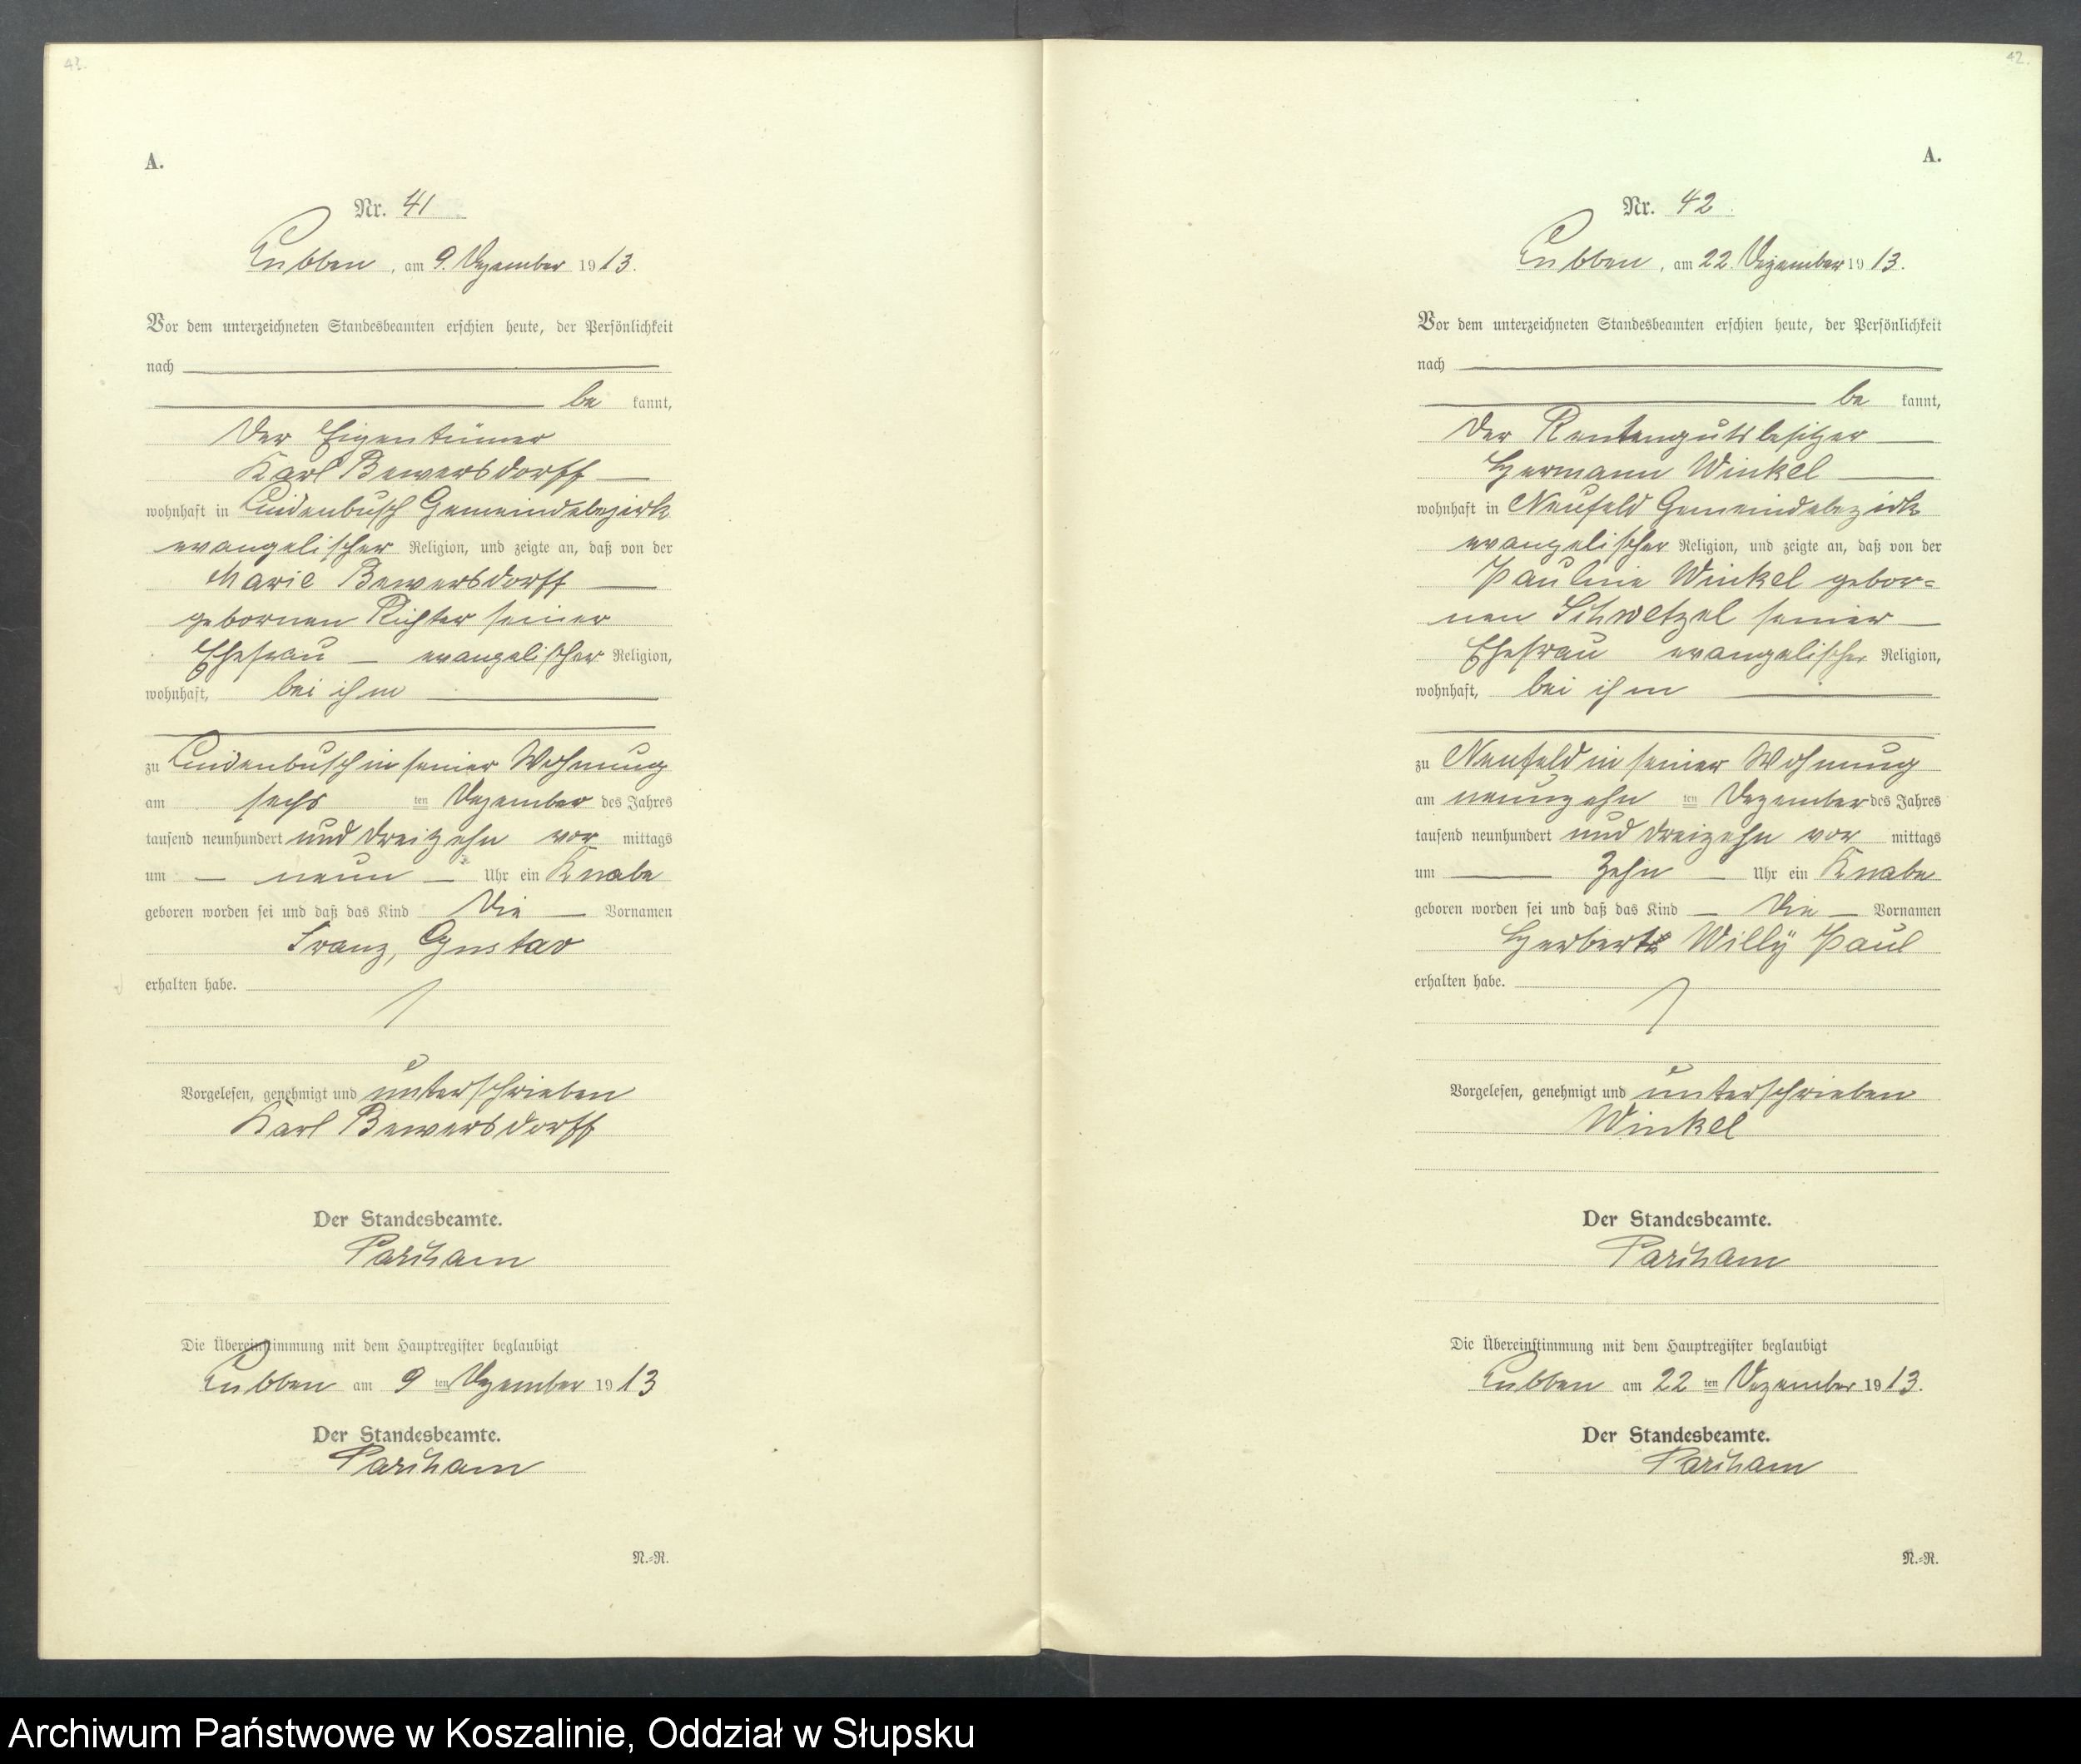 41.
A.
Nr. 41
Lubben, am 9. Dezember 1913.
Vor dem unterzeichneten Standesbeamten erschien heute, der Persönlichkeit
nach
be kannt,
der Eigentümer
Karl Bewersdorff
wohnhaft in Lindenbusch Gemeindebezirk
evangelischer Religion, und zeigte an, daß von der
Marie Bewersdorff
gebornen Richter seiner
Ehefrau evangelischer Religion,
wohnhaft, bei ihm
zu Lindenbusch in seiner Wohnung
am sechs ten Dezember des Jahres
tausend neunhundert und dreitzehn vor mittags
um neun Uhr ein Knabe
geboren worden sei und daß das Kind die Vornamen
Franz, Gustav
erhalten habe.
Vorgelesen, genehmigt und unterschrieben
Karl Bewersdorff
Der Standesbeamte.
Die Übereinstimmung mit dem Hauptregister beglaubigt
Lubben am 9 ten Dezember 1913
Der Standesbeamte.
N.=R.
42.
A.
Nr. 42
Lubben, am 22. Dezember 1913.
Vor dem unterzeichneten Standesbeamten erschien heute, der Persönlichkeit
nach
be kannt,
der Rentengutsbesitzer
Hermann Winkel
wohnhaft in Neufeld Gemeindebezirk
evangelischer Religion, und zeigte an, daß von der
Pauline Winkel gebor=
nen Schwetzel seiner
Ehefrau evangelischer Religion,
wohnhaft, bei ihm
zu Neufeld in seiner Wohnung
am neunzehn ten Dezember des Jahres
tausend neunhundert und dreizehn vor mittags
um zehn Uhr ein Knabe
geboren worden sei und daß das Kind die Vornamen
Herbert Willy Paul
erhalten habe.
Vorgelesen, genehmigt und unterschrieben
Winkel
Der Standesbeamte.
Die Übereinstimmung mit dem Hauptregister beglaubigt
Lubben am 22 ten Dezember 1913.
Der Standesbeamte.
N.=R.
Archiwum Państwowe w Koszalinie, Oddział w Słupsku